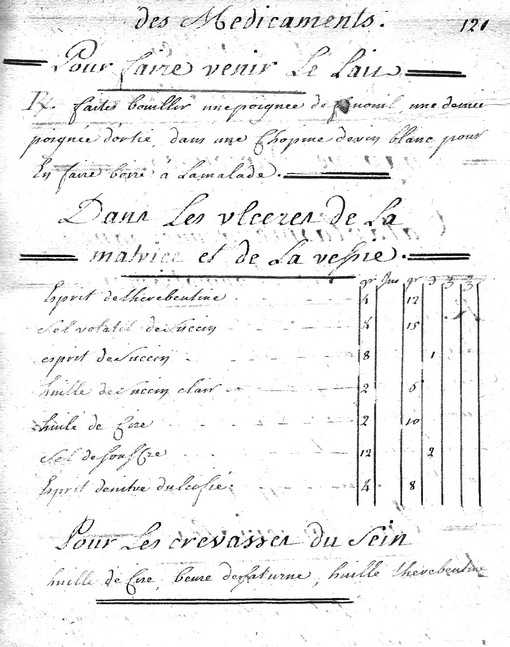 des Medicaments. 121
Pour faire venir Le Lait
Rx. faites bouillir une poignée de fenouil, une demie
poignée d'ortie, dans une Chopine de vin blanc pour
En faire boire à La malade.
Dans Les ulceres de La
matrice et de La vessie.
gr gr ℈ ʒ ʒ
Esprit de therebentine 4 12
Sel volatil de Succin 4 15
esprit de Succin 8 1
huille de Succin clair 2 6
huile de Cire 2 10
Sel de souffre 12 2
Esprit de nitre dulcifié: 4 8
Pour Les crevasses du Sein
huille de Cire, beure de saturne, huille therebentine